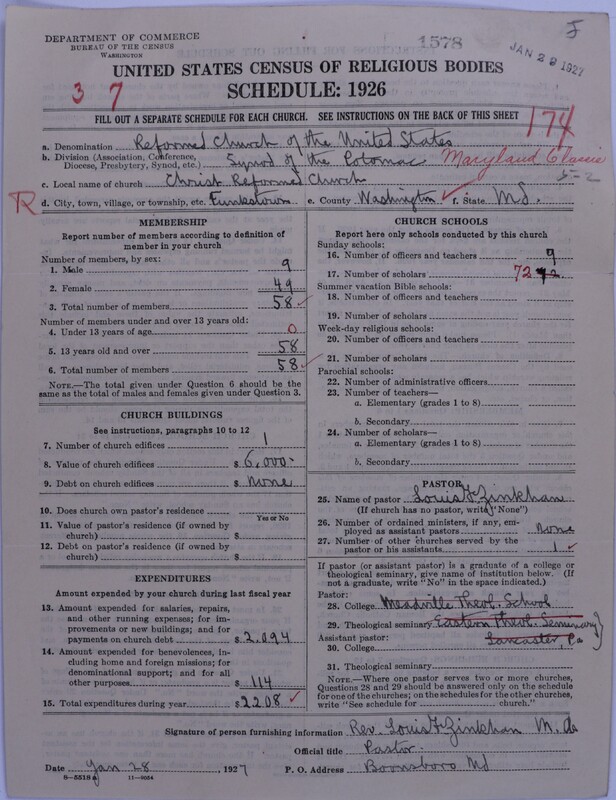 DEPARTMENT OF COMMERCE
BUREAU OF THE CENSUS
WASHINGTON
1578
JAN 29 1927
UNITED STATES CENSUS OF RELIGIOUS BODIES
SCHEDULE: 1926
3 7
FILL OUT A SEPARATE SCHEDULE FOR EACH CHURCH. SEE INSTRUCTIONS ON THE BACK OF THIS SHEET
174
a. Denomination Reformed Church of the United States
b. Division (Association, Conference, Diocese, Presbytery, Synod, etc.) Synod of the Potomac Maryland Classis
5-2
c. Local name of church Christ Reformed Church
R d. City, town, village, or township, etc. Funkstown e. County Washington f. State Md.
MEMBERSHIP
Report number of members according to definition of
member in your church
Number of members, by sex:
1. Male 9
2. Female 49
3. Total number of members 58
Number of members under and over 13 years old:
4. Under 13 years of age 0
5. 13 years old and over 58
6. Total number of members 58
NOTE.—The total given under Question 6 should be the
same as the total of males and females given under Question 3.
CHURCH BUILDINGS
See instructions, paragraphs 10 to 12
7. Number of church edifices 1
8. Value of church edifices $ 6,000
9. Debt on church edifices $ None
10. Does church own pastor's residence
Yes or No
11. Value of pastor's residence (if owned by
church) $
12. Debt on pastor's residence (if owned by
church) $
EXPENDITURES
Amount expended by your church during last fiscal year
13. Amount expended for salaries, repairs,
and other running expenses; for im-
provements or new buildings; and for
payments on church debt $ 2.094
14. Amount expended for benevolences, in-
cluding home and foreign missions; for
denominational support; and for all
other purposes $ 114
15. Total expenditures during year $ 2208
CHURCH SCHOOLS
Report here only schools conducted by this church
Sunday schools:
16. Number of officers and teachers 9
17. Number of scholars 72
Summer vacation Bible schools:
18. Number of officers and teachers
19. Number of scholars
Week-day religious schools:
20. Number of officers and teachers
21. Number of scholars
Parochial schools:
22. Number of administrative officers
23. Number of teachers—
a. Elementary (grades 1 to 8)
b. Secondary
24. Number of scholars—
a. Elementary (grades 1 to 8)
b. Secondary
PASTOR
25. Name of pastor Louis F Zinkham
(If church has no pastor, write "None")
26. Number of ordained ministers, if any, em-
ployed as assistant pastors None
27. Number of other churches served by the
pastor or his assistants 1
If pastor (or assistant pastor) is a graduate of a college or
theological seminary, give name of institution below. (If
not a graduate, write "No" in the space indicated.)
Pastor:
28. College Meadville Theol. School
29. Theological seminary Eastern Theol. Seminary
Assistant pastor: Lancaster, Pa
30. College
31. Theological seminary
NOTE.—Where one pastor serves two or more churches,
Questions 28 and 29 should be answered only on the schedule
for one of the churches; on the schedules for the other churches,
write "See schedule for church."
Signature of person furnishing information Rev. Louis F Zinkham
Official title Pastor
Date Jan 28, 1927 P. O. Address Boonsboro Md